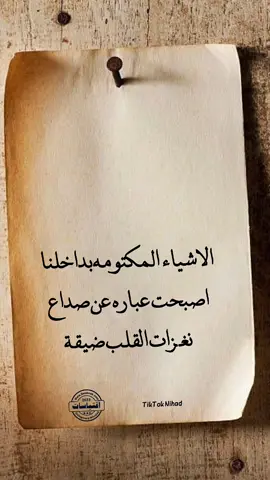 الاشياء المكتومه بداخلنا
اصبحت عباره عن صداع
نغزات القلب ضيقة
اقتباسات
TikTok Nihad